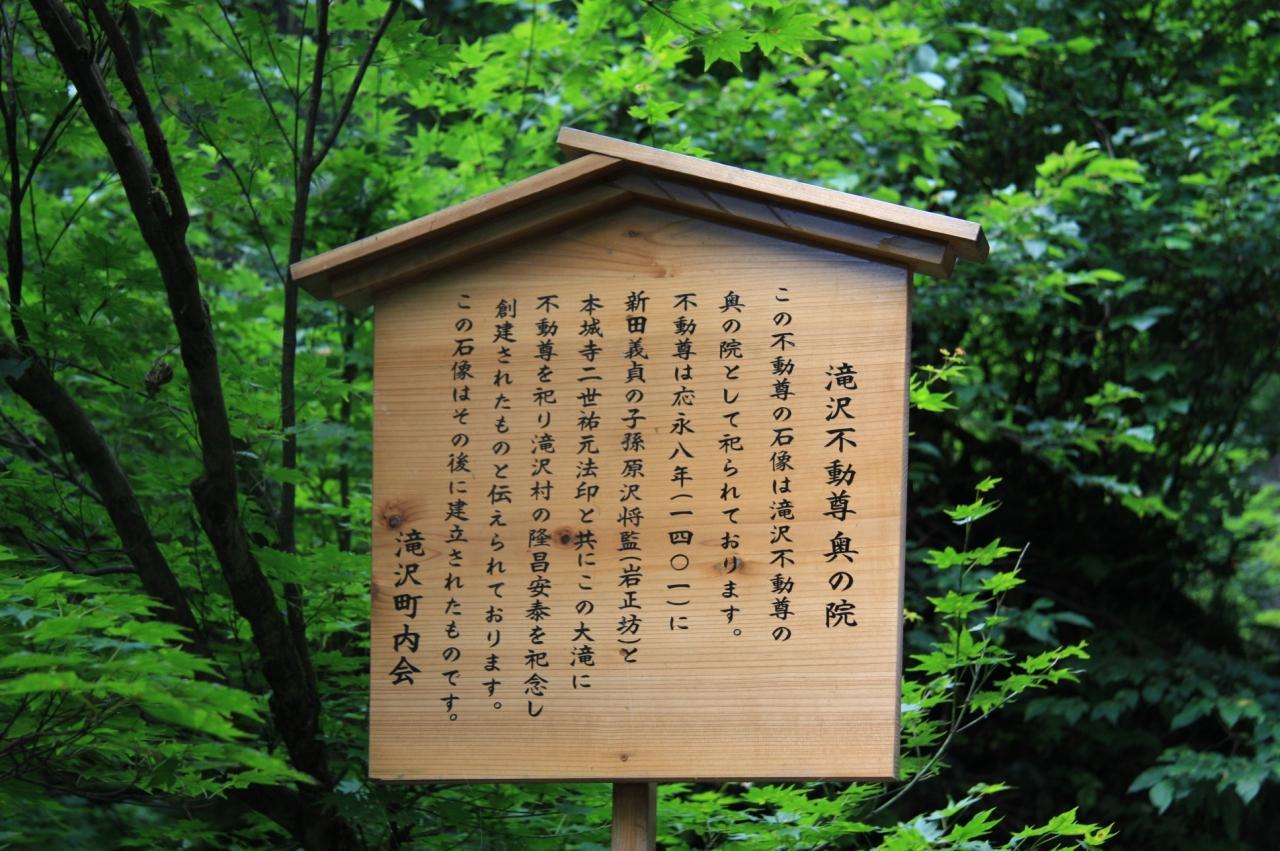 滝沢不動尊奥の院
この不動尊の石像は滝沢不動尊の
奥の院として祀られております。
不動尊は応永八年(一四〇一)に
新田義貞の子孫原沢将監(岩正坊)と
本城寺二世祐元法印と共にこの大滝に
不動尊を祀り滝沢村の隆昌安泰を祀念し
創建されたものと伝えられております。
この石像はその後に建立されたものです。
滝沢町内会